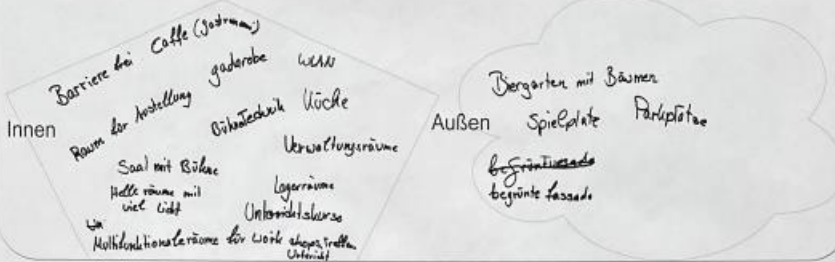 Innen
Barriere frei
Caffe (gastronomi)
Raum für Austellung
gaderobe
WLAN
BühnenTechnik
Küche
Verwaltungsräume
Saal mit Bühne
Helle räume mit
viel Licht
Lagerräume
Unterrichtskurse
Multifunktionsleräume für work shops, treffen
Unterricht
Außen
Biergarten mit Bäumen
Spielplatz
Parkplätze
begrünte fassade